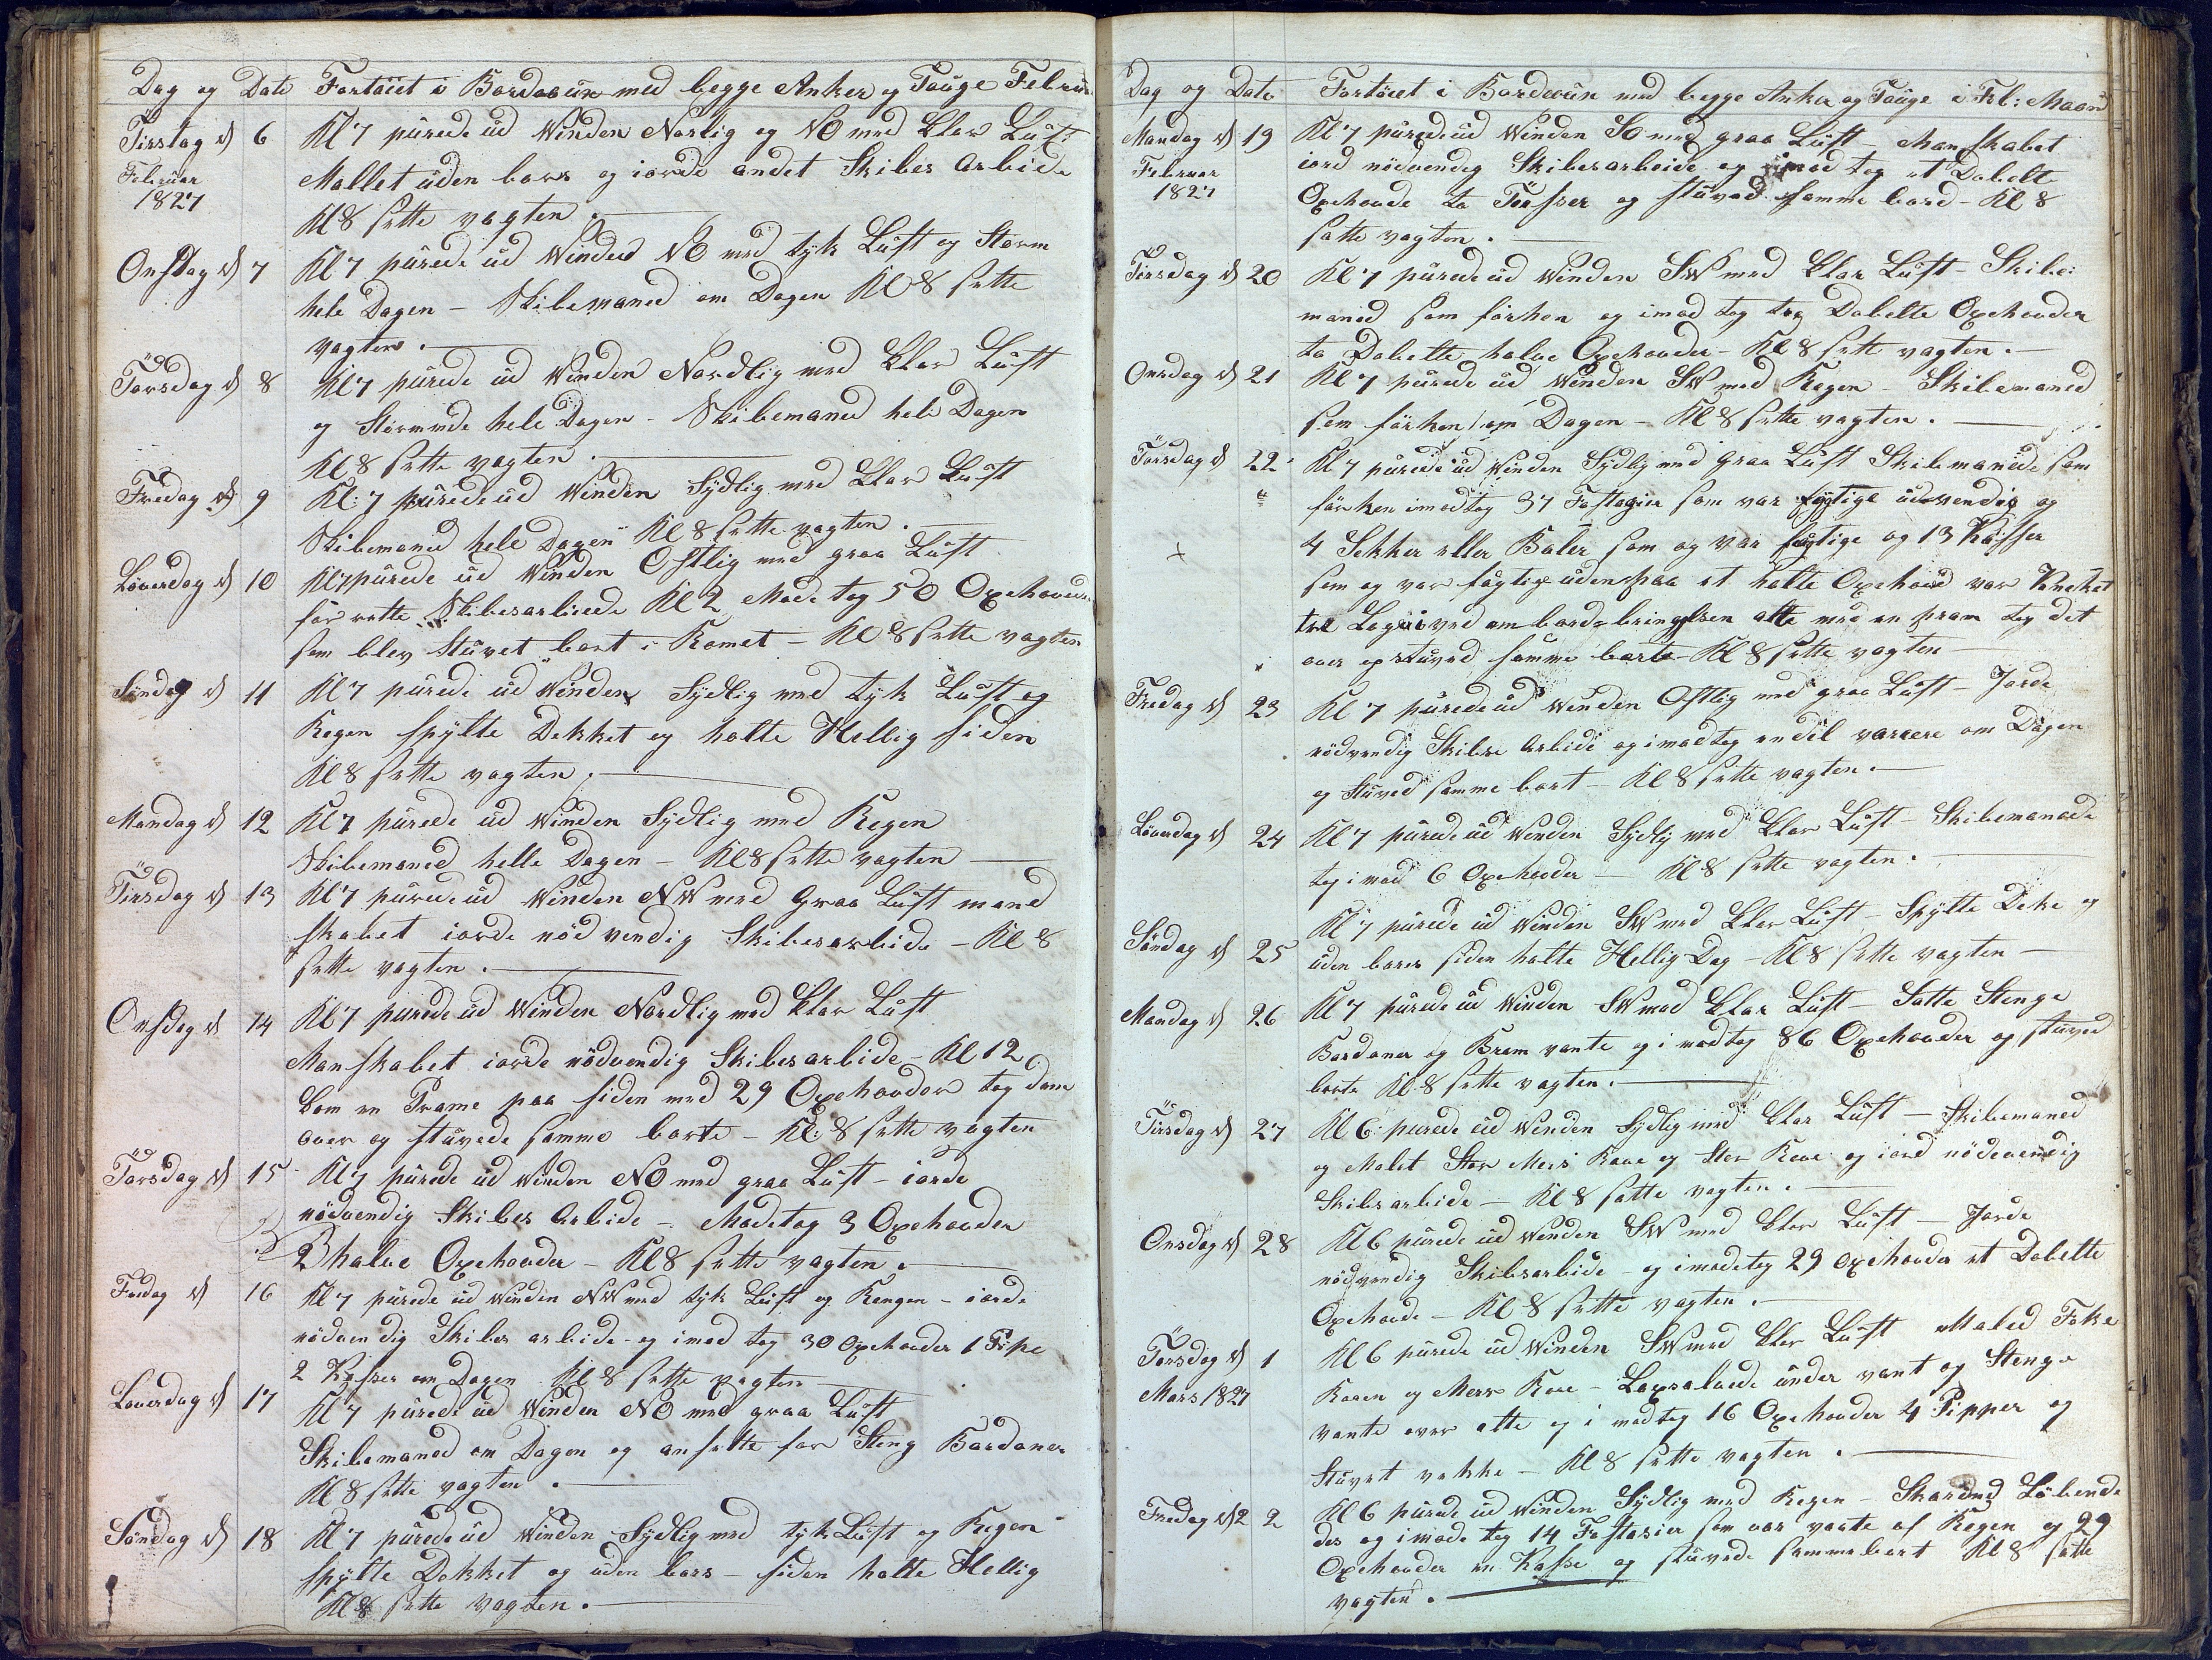 Dag og Dato Fortöiet i Bordeaux med begge Anker og Touge Februar
Tirstag d 6 Kl 7 purede ud Winden Norlig og NO med klar Luft
Februar Mallet uden bors og iorde andet Skibes Arbide
1827 Kl 8 sette vagten.
Onstag d 7 Kl 7 purede ud Winden NO med tyk Luft og Storm
hele Dagen - Skibemaned om Dagen Kl 8 sette
vagten.
Torsdag d 8 Kl 7 purede ud Winden Nordlig med klar Luft
og Stormede hele Dagen - Skibemaned hele Dagen
Kl 8 sette vagten.
Fredag d 9 Kl: 7 purede ud Winden Sydlig med klar Luft
Skibemaned hele Dagen Kl 8 sette vagten.
Löverdag d 10 Kl 7 purede ud Winden Ostlig med graa Luft
for rette Skibesarbiede Kl 2 Mode tog 50 Oxehoveder
som blev Stuvet bort i Romet - Kl 8 sette vagten
Söndag d 11 Kl 7 purede ud Winden Sydlig med tyk Luft og
Regen spylte Dekket og holte Hellig siden
Kl 8 sette vagten.
Mandag d 12 Kl 7 purede ud Winden Sydlig med Regen
Skibemaned helle Dagen - Kl 8 sette vagten
Tirsdag d 13 Kl 7 purede ud Winden NW med Graa Luft mand
skabet iorde nöd vendig Skibesarbide - Kl 8
sette vagten.
Onsdag d 14 Kl 7 purede ud Winden Nordlig med klar Luft
Manskabet iorde nödvendig Skibesarbide - Kl 12
kom en Prame paa siden med 29 Oxehoveder tog dem
over og stuvede samme borte - Kl: 8 sette vagten
Torsdag d 15 Kl 7 purede ud Winden NO med graa Luft - iorde
nödvendig Skibes Arbide - Modetog 3 Oxehoveder
2 halve Oxehoveder - Kl 8 sette vagten.
Fredag d 16 Kl 7 purede ud Winden NW med tyk Luft og Rengen - iorde
nödvendig Skibes arbide - og imod tog 30 Oxehoveder 1 Pipe
2 Kasser om Dagen Kl 8 sette vagten
Löverdag d 17 Kl 7 purede ud Winden NO med graa Luft
Skibemaned om Dagen og ansette for Steng Bardoner
Kl 8 sette vagten.
Söndag d 18 Kl 7 purede ud Winden Sydlig med tyk Luft og Regen
spylte Dekket og uden bors - siden holte Hellig
Kl 8 sette vagten.
Dag og Dato Fortöiet i Bordeaux med begge Anker og Touge i Feb: Maaned
Mandag d 19 Kl 7 purede ud Winden SO med graa Luft Manskabet
Februar iord nödvendig Skibesarbeide og imod tog et Dobelt
1827 Oxehoude to Tösser og stuved samme bord - Kl 8
satte vagten.
Tirsdag d 20 Kl 7 purede ud Winden SW med klar Luft - Skibe
maned som förhen og imod tog tog Dobelte Oxehouder
to Dobelte halve Oxehouder - Kl 8 sette vagten.
Onsdag d 21 Kl 7 purede ud Winden SW med Regen - Skibemaned
som förhen om Dagen - Kl 8 sette vagten.
Torsdag d 22 Kl 7 purede ud Winden Sydlig med Graa Luft Skibemanede som
förhen imodtog 37 Fastagier som var fugtige udvendig og
4 Sekker eller Baler som og var fugtige og 13 Kasser
som og var fugtige udenpaa et halte Oxehoud var knecket
ved ombordbringelsen atte med en pram tog det
over og stuved samme borte Kl 8 sette vagten
Fredag d 23 Kl 7 purede ud Winden Ostlig med graa Luft - Jorde
nödvendig Skibes Arbide og imodtog endel varrere om Dagen
og stuved samme bort - Kl 8 sette vagten.
Löverdag d 24 Kl 7 purede ud Winden Sydlig med klar Luft - Skibemanede
tog imod 6 Oxehouder - Kl 8 sette vagten.
Söndag d 25 Kl 7 purede ud Winden SW med klar Luft - Spylte Deke og
uden bors siden holte Hellig Dag - Kl 8 sette vagten
Mandag d 26 Kl 7 purede ud Winden SW med klar Luft - Satte Stenge
Bardoner og Bram vante og imodtog 86 Oxehouder og stuved
borte Kl 8 sette vagten.
Tirsdag d 27 Kl 6: purede ud Winden Sydlig med klar Luft - Skibemaned
og Malet Stor Mers Raae og Stor Raae og iord nödevendig
Skibsarbide - Kl 8 satte vagten.
Onsdag d 28 Kl 6 purede ud Winden SW med klar Luft - Jorde
nödvendig Skibsarbide - og imodetog 29 Oxehouder et Dobelte
Oxehoude - Kl 8 sette vagten.
Torsdag d 1 Kl 6 purede ud Winden SW med klar Luft Maled Foke
Mars 1827 Raaen og Mers Raae - under vant og Stenge
vante over alle og imodtog 16 Oxehouder 4 Pipper og
Stuvet vekke - Kl 8 sette vagten.
Fredag d 2 2 Kl 6 purede ud Winden Sydlig med Regen - Löbende
des og imode tog 14 Fostasier som var vaate af Regen og 29
Oxehouder en Kasse og stuvede samme bort Kl 8 satte
vagten.